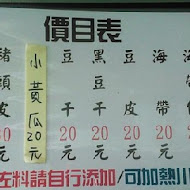 價目表
豬頭皮20元
小黃瓜20元
豆干20元
黑豆干20元
豆皮20元
海帶20元
佐料請自行添加/可加熱